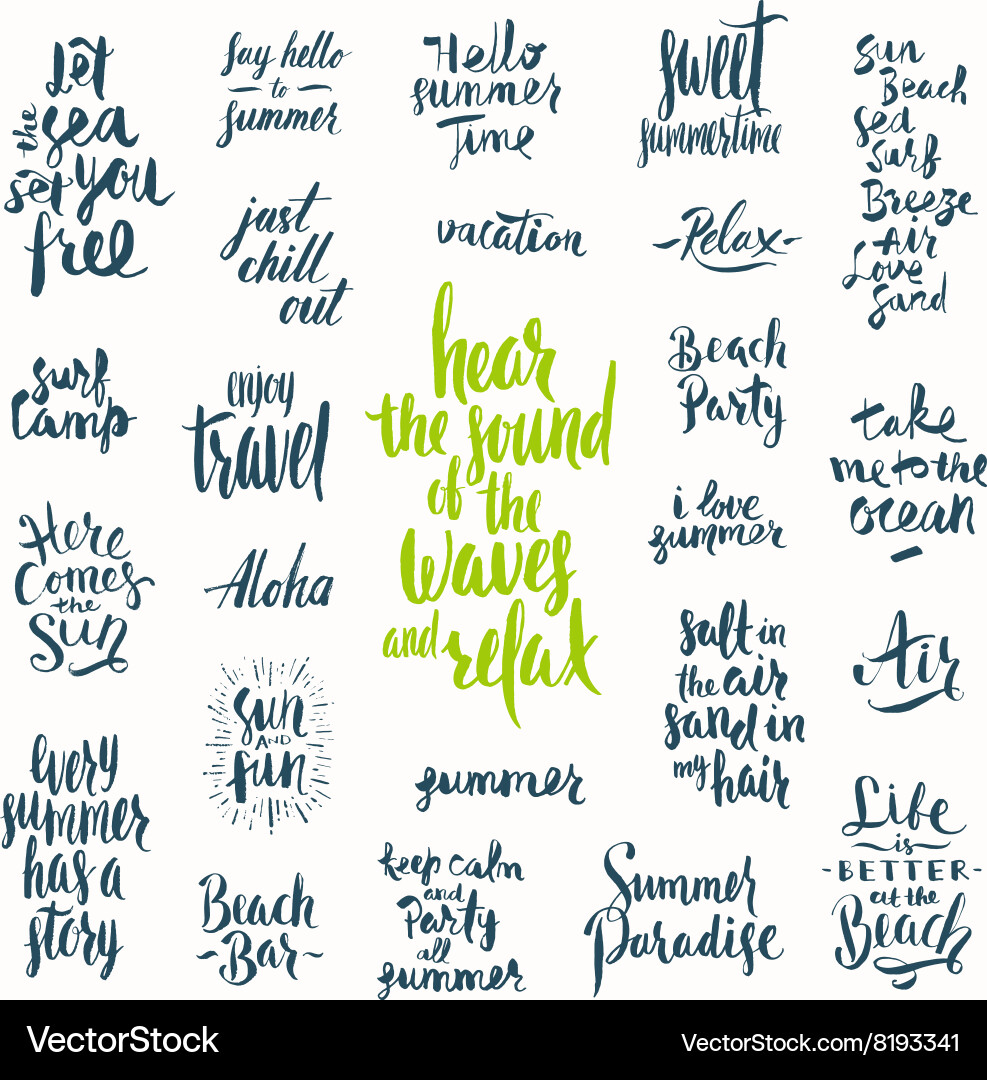 Let
the sea
set you
free
say hello
to
summer
Hello
summer
Time
sweet
summertime
sun
Beach
sea
surf
Breeze
Air
Love
sand
just
chill
out
vacation
-Relax-
surf
camp
enjoy
travel
hear
the sound
of the
waves
and relax
Beach
Party
take
me to the
ocean
Here
Comes
the
Sun
Aloha
i love
summer
salt in
the air
sand in
my hair
Air
sun
AND
fun
every
summer
has a
story
summer
Beach
~Bar~
keep calm
and
Party
all
summer
Summer
Paradise
Life
is
-BETTER-
at the
Beach
VectorStock®
VectorStock.com/8193341